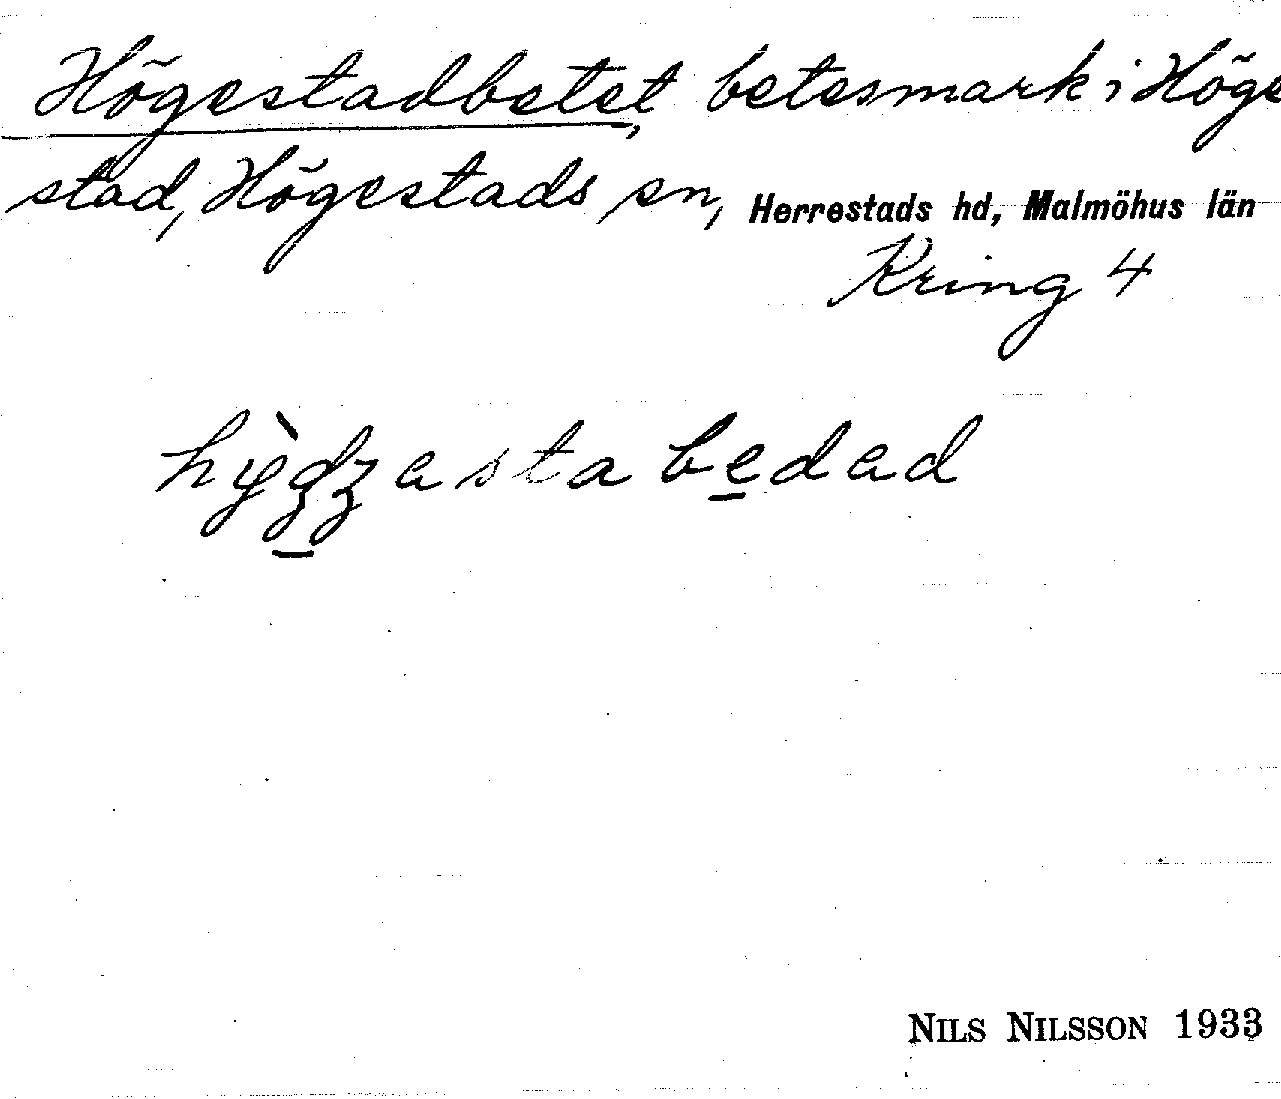 Högestadbetet, betesmark i Höge
stad, Högestads sn, Herrestads hd, Malmöhus län
Kring 4
NILS NILSSON 1933